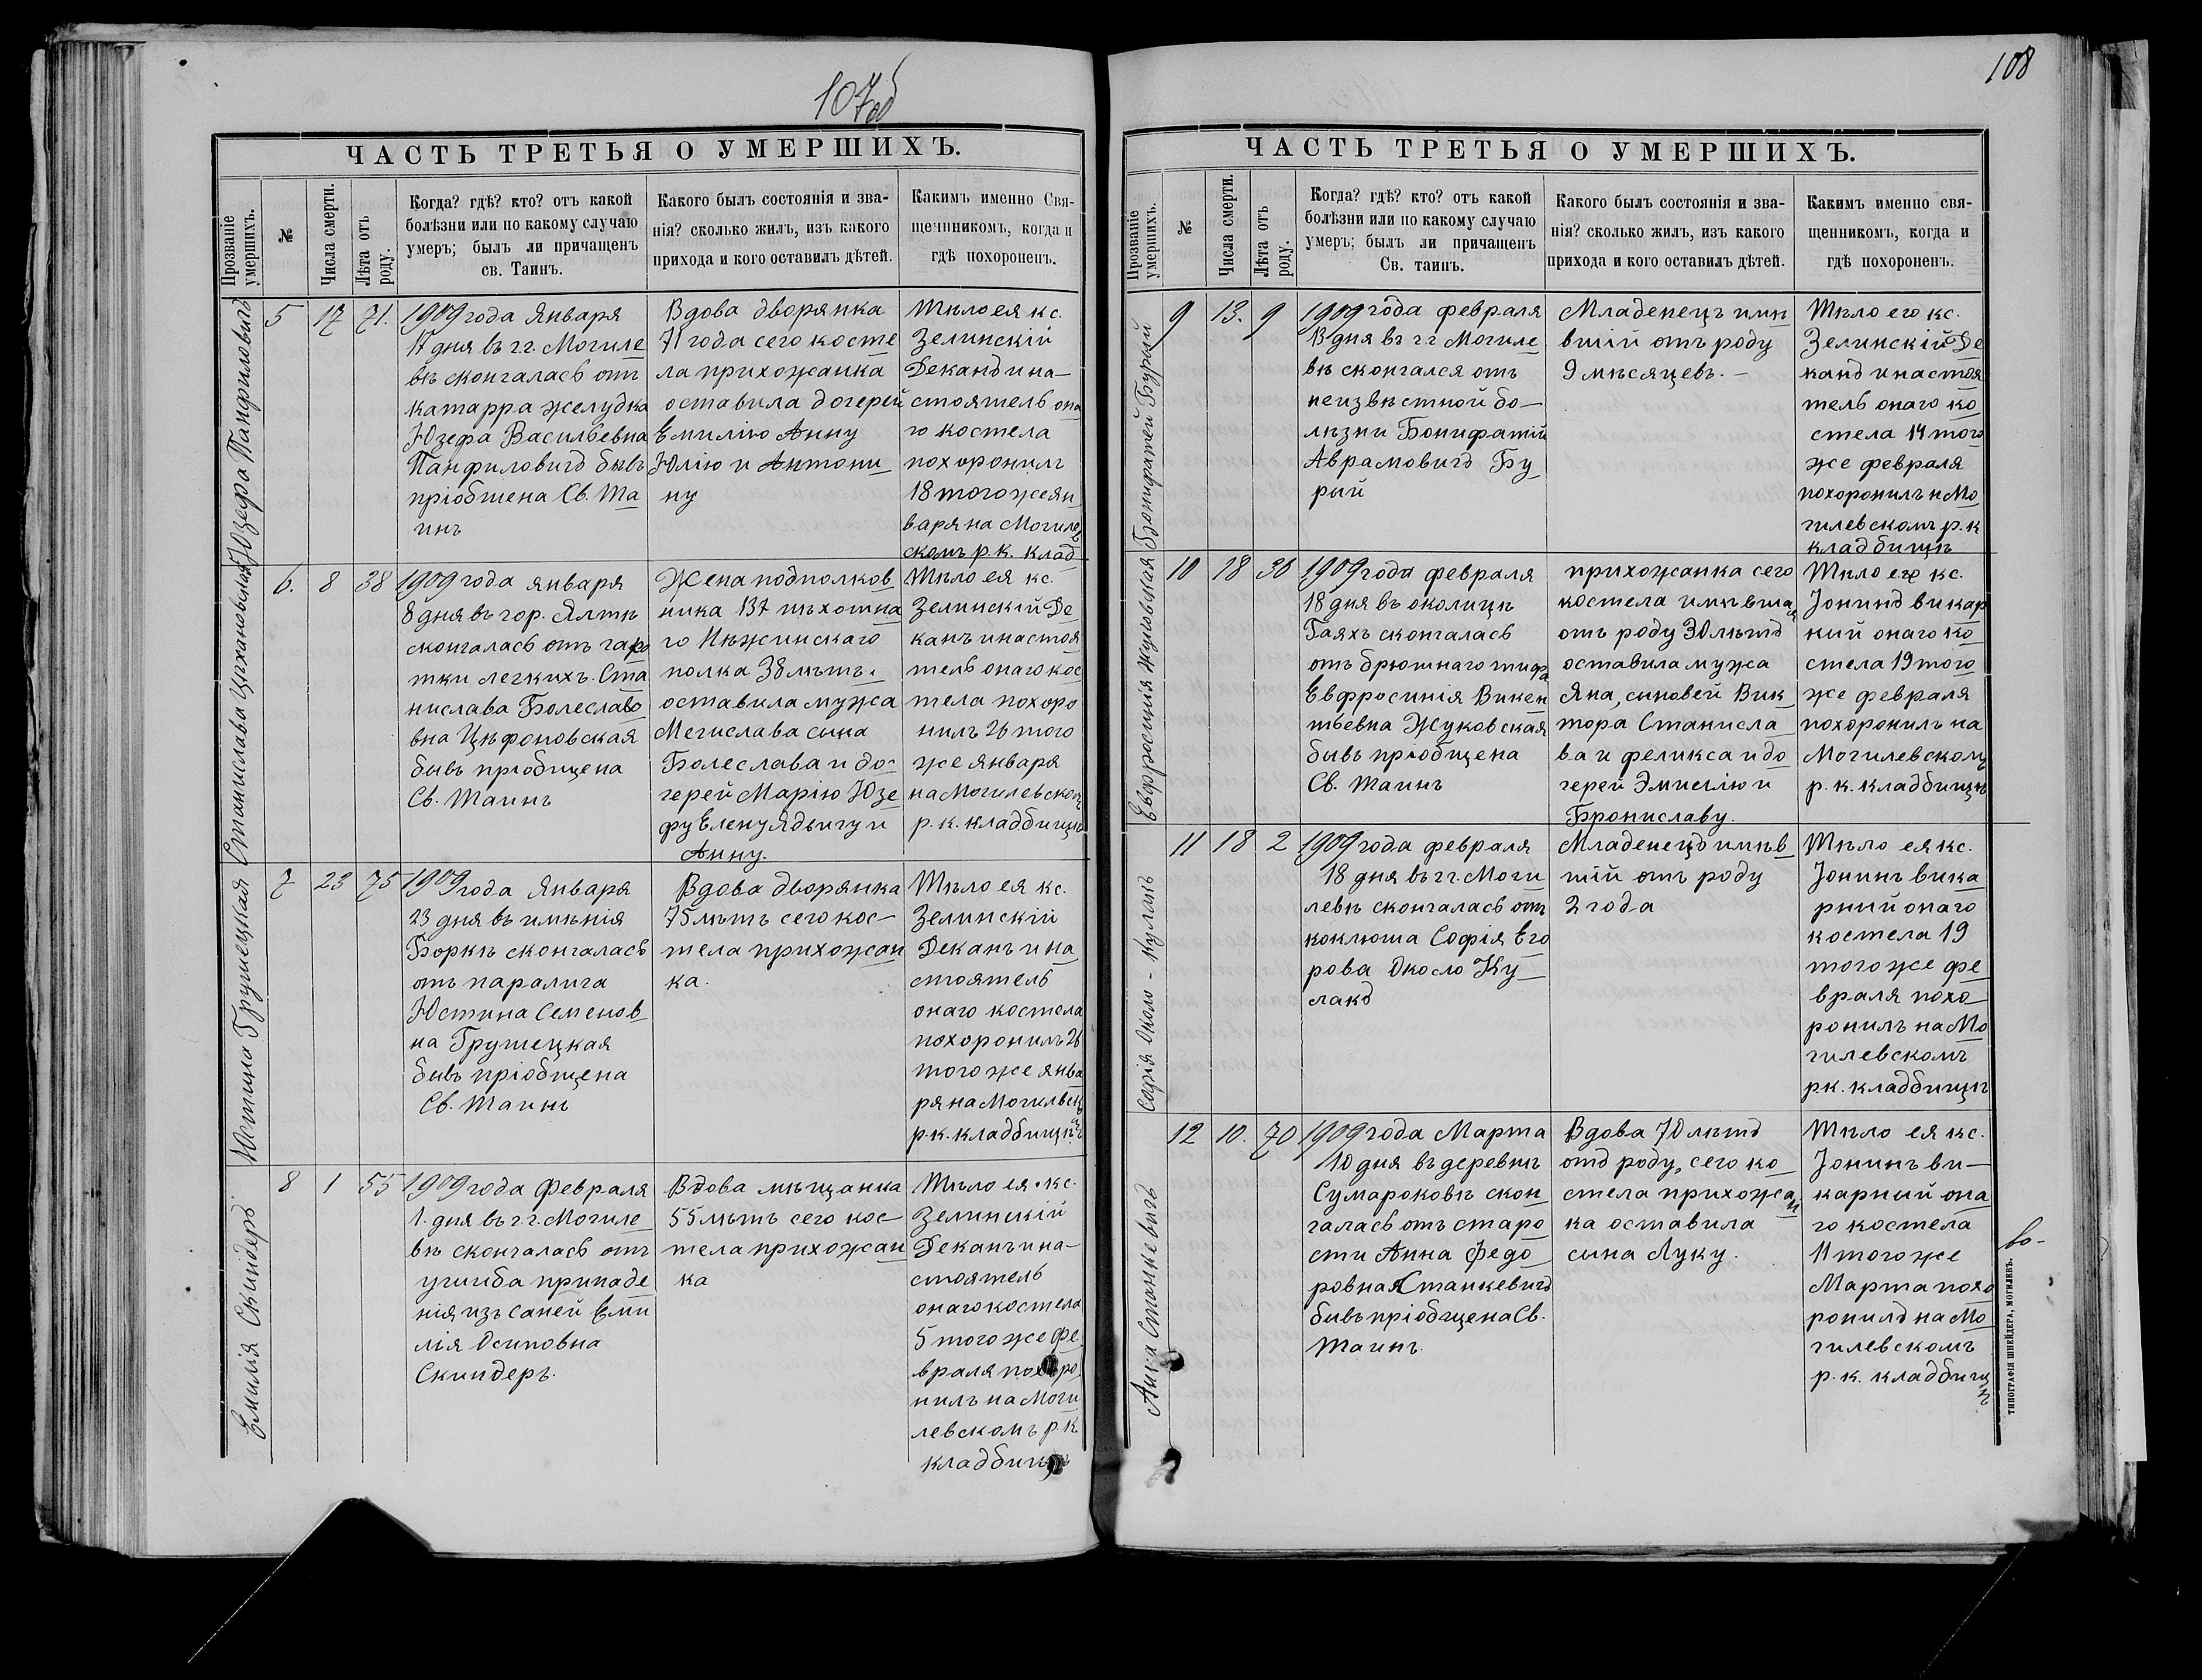 107об
ЧАСТЬ ТРЕТЬЯ О УМЕРШИХЪ.
Прозваніе умершихъ.
№
Числа смерти.
Лѣта отъ роду.
Когда? гдѣ? кто? отъ какой
болѣзни или по какому случаю
умеръ; былъ ли причащенъ
св. Таинъ.
Какого былъ состоянія и зва-
нія? сколько жилъ, изъ какого
прихода и кого оставилъ дѣтей.
Какимъ именно Свя-
щенникомъ, когда и
гдѣ похороненъ.
Юзефа Панфиловичъ
5
17
71.
1909 года Января
17 дня въ г.г. Могиле
вѣ скончалась отъ
катарра желудка
Юзефа Васильевна
Панфиловичъ бывъ
пріобшена Св. Та
инъ
Вдова дворянка
71 года сего косте
ла прихожанка
оставила дочерей
Емилію Анну
Юлію и Антони
ну
Тѣло ея кс.
Зелинскій
Деканъ и на-
стоятель она
го костела
похоронилъ
18 того же ян
варя на Могилев
скомъ р.к. клад
Станислава Цѣхановская
6.
8
38
1909 года января
8 дня въ гор. Ялтѣ
скончалась отъ чахо
тки легкихъ. Ста
нислава Болеславо
вна Цѣхоновская
бывъ пріобщена
Св. Таинъ
Жена подполков
ника 137 пѣхотна
го Нѣжинскаго
полка 38 лѣтъ.
оставила мужа
Мечислава сына
Болеслава и до-
черей Марію Юзе
фу Елену Ядвигу и
Анну.
Тѣло ея кс.
Зелинскій Де
канъ и настоя
тель онаго кос
тела похоро
нилъ 26 того
же января
на Могилевском
р.к. кладбищѣ
Юстина Грушецкая
7
23
75
1909 года Января
23 дня въ имѣнія
Боркѣ скончалась
отъ паралича
Юстина Семенов
на Грушецкая
бывъ пріобщена
Св. Таинъ
Вдова дворянка
75 лѣтъ сего кос-
тела прихожан
ка.
Тѣло ея кс.
Зелинскій
Деканъ и на
стоятель
онаго костела
похоронилъ 26
того же янва
ря на Могилвск
р.к. кладбищѣ
Емилія Скиндеръ.
8
1
55
1909 года Февраля
1. дня въ г.г. Могиле
вѣ скончалась отъ
ушиба припаде
нія изъ саней Еми
лія Осиповна
Скиндеръ.
Вдова мѣщанка
55 лѣтъ сего кос-
тела прихожан
ка
Тѣло ея кс.
Зелинскій
Деканъ и на-
стоятель
онаго костела
5 того же Фе
враля похоро
нилъ на Моги
левскомъ р.к.
кладбищѣ
108
ЧАСТЬ ТРЕТЬЯ О УМЕРШИХЪ.
Прозваніе умершихъ.
№
Числа смерти.
Лѣта отъ роду.
Когда? гдѣ? кто? отъ какой
болѣзни или по какому случаю
умеръ; былъ ли причащенъ
Св. таинъ.
Какого былъ состоянія и зва-
нія? сколько жилъ, изъ какого
прихода и кого оставилъ дѣтей.
Какимъ именно свя-
щенникомъ, когда и
гдѣ похороненъ.
Бонифатей Бурый
9
13.
9
1909 года февраля
13 дня въ г.г Могиле
вѣ скончался отъ
неизвѣстной бо-
лѣзни Бонифатій
Аврамовичъ Бу
рый
Младенецъ имѣ
вшій отъ роду
9 мѣсяцевъ. -
Тѣло его кс.
Зелинскій Де
канъ и настоя
тель онаго ко
стела 14 того
же февраля
похоронилъ н Мо
гилевскомъ р.к
кладбищѣ
Евфросинія Жуковская
10
18
30
1909 года февраля
18 дня въ околицѣ
Гаяхъ скончалась
отъ брюшнаго тифа
Евфросинія Викен
тьевна Жуковская
бывъ пріобщена
Св. Таинъ
прихожанка сего
костела имѣвшая
отъ роду 30 лѣтъ
оставила мужа
Яна, сыновей Вик
тора Станисла
ва и феликса и до
черей Эмилію и
Брониславу.
Тѣло ея кс.
Іонинъ викар
ный онаго ко
стела 19 того
же февраля
похоронилъ на
Могилевскомъ
р.к. кладбищѣ
Софія Около-Кулакъ
11
18
2
1909 года февраля
18 дня въ г.г. Моги
левѣ скончалась отъ
коклюша Софія Его
рова Около Ку
лакъ
Младенецъ имѣв
шій отъ роду
2 года
Тѣло ея кс.
Іонинъ вика
рный онаго
костела 19
того же фе
враля похо
ронилъ на Мо
гилевскомъ
р.к. кладбищѣ
Анна Станкевичъ
12
10.
70
1909 года Марта
10 дня въ деревнѣ
Сумароковѣ скон
чалась отъ старо
сти Анна Федо
ровная Станкевичъ
бывъ пріобщена Св.
Таинъ.
Вдова 70 лѣтъ
отъ роду, сего ко
стела прихожан
ка оставила
сына Луку.
Тѣло ея кс.
Іонинъ ви-
карный она
го костела
11 того же
Марта похо
ронилъ на Мо
гилевскомъ
р.к. кладбищѣ
ТИПОГРАФІЯ ШНЕЙДЕРА, МОГИЛЕВЪ.